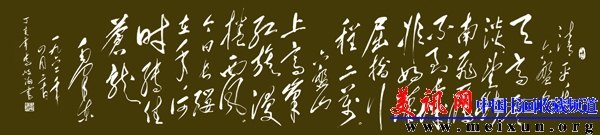 清平乐
六盘山
天高云
淡望断
南飞雁
不到长城
非好汉
屈指行
程二万
六盘山
上高峰
红旗漫
捲西风
今日长缨
在手何
时缚住
蒼龙
毛泽东
一九六二年
丁亥年
美讯网
中国书画收藏频道
www.meixun.org